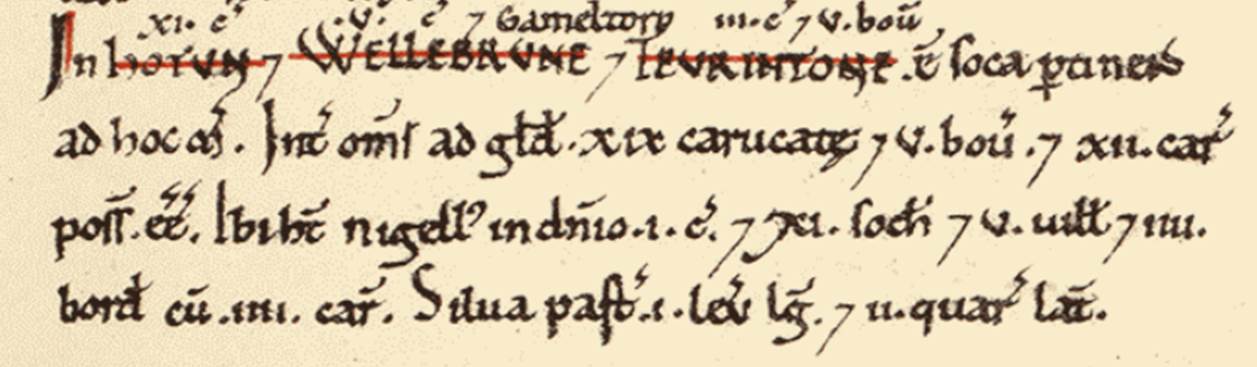 xi. c̃ .v. c̃ ⁊ Gameltorp iii. c̃ ⁊ v. boũ
In hOTUN ⁊ WELLEBRUNE ⁊ LEURINTONE .ẽ soca ꝑtinens
ad hoc oȝ. Int̃ om̃s ad gld̃. xix carucatæ ⁊ v. boũ. ⁊ xii. car̃
poss̃. eẽ. Ibi hт̃ nigell' in dñio .i. c̃. ⁊ xi. socħ ⁊ v. uiłł ⁊ iiii.
bord̃ cũ .iiii. car̃. Silua past̃ .i. leũ lg̃. ⁊ ii. quar̃ lat̃.